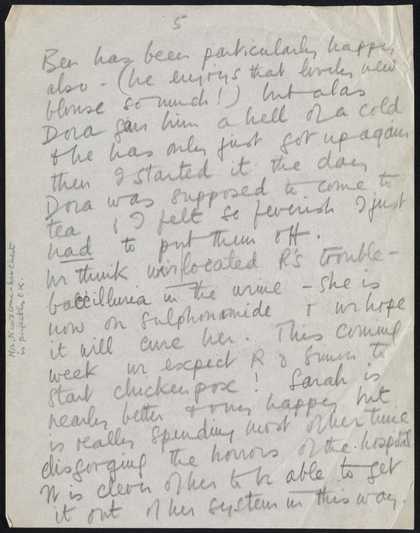 5
Ben has been particularly happy
also - (he enjoys that lovely new
blouse so much!) but alas
Dora gave him a hell of a cold
& he has only just got up again
then I started it the day
Dora was supposed to come to
tea & I felt so feverish I just
had to put them off.
We think we've located R's trouble -
baccilluria in the urine - she is
now on sulphonomide & we hope
it will cure her. This coming
week we expect R & Simon to
start chickenpox! Sarah is
nearly better & very happy but
is really spending most of her time
disgorging the horrors of the hospital
It is clever of her to be able to get
it out of her system in this way.
is perfectly O.K.